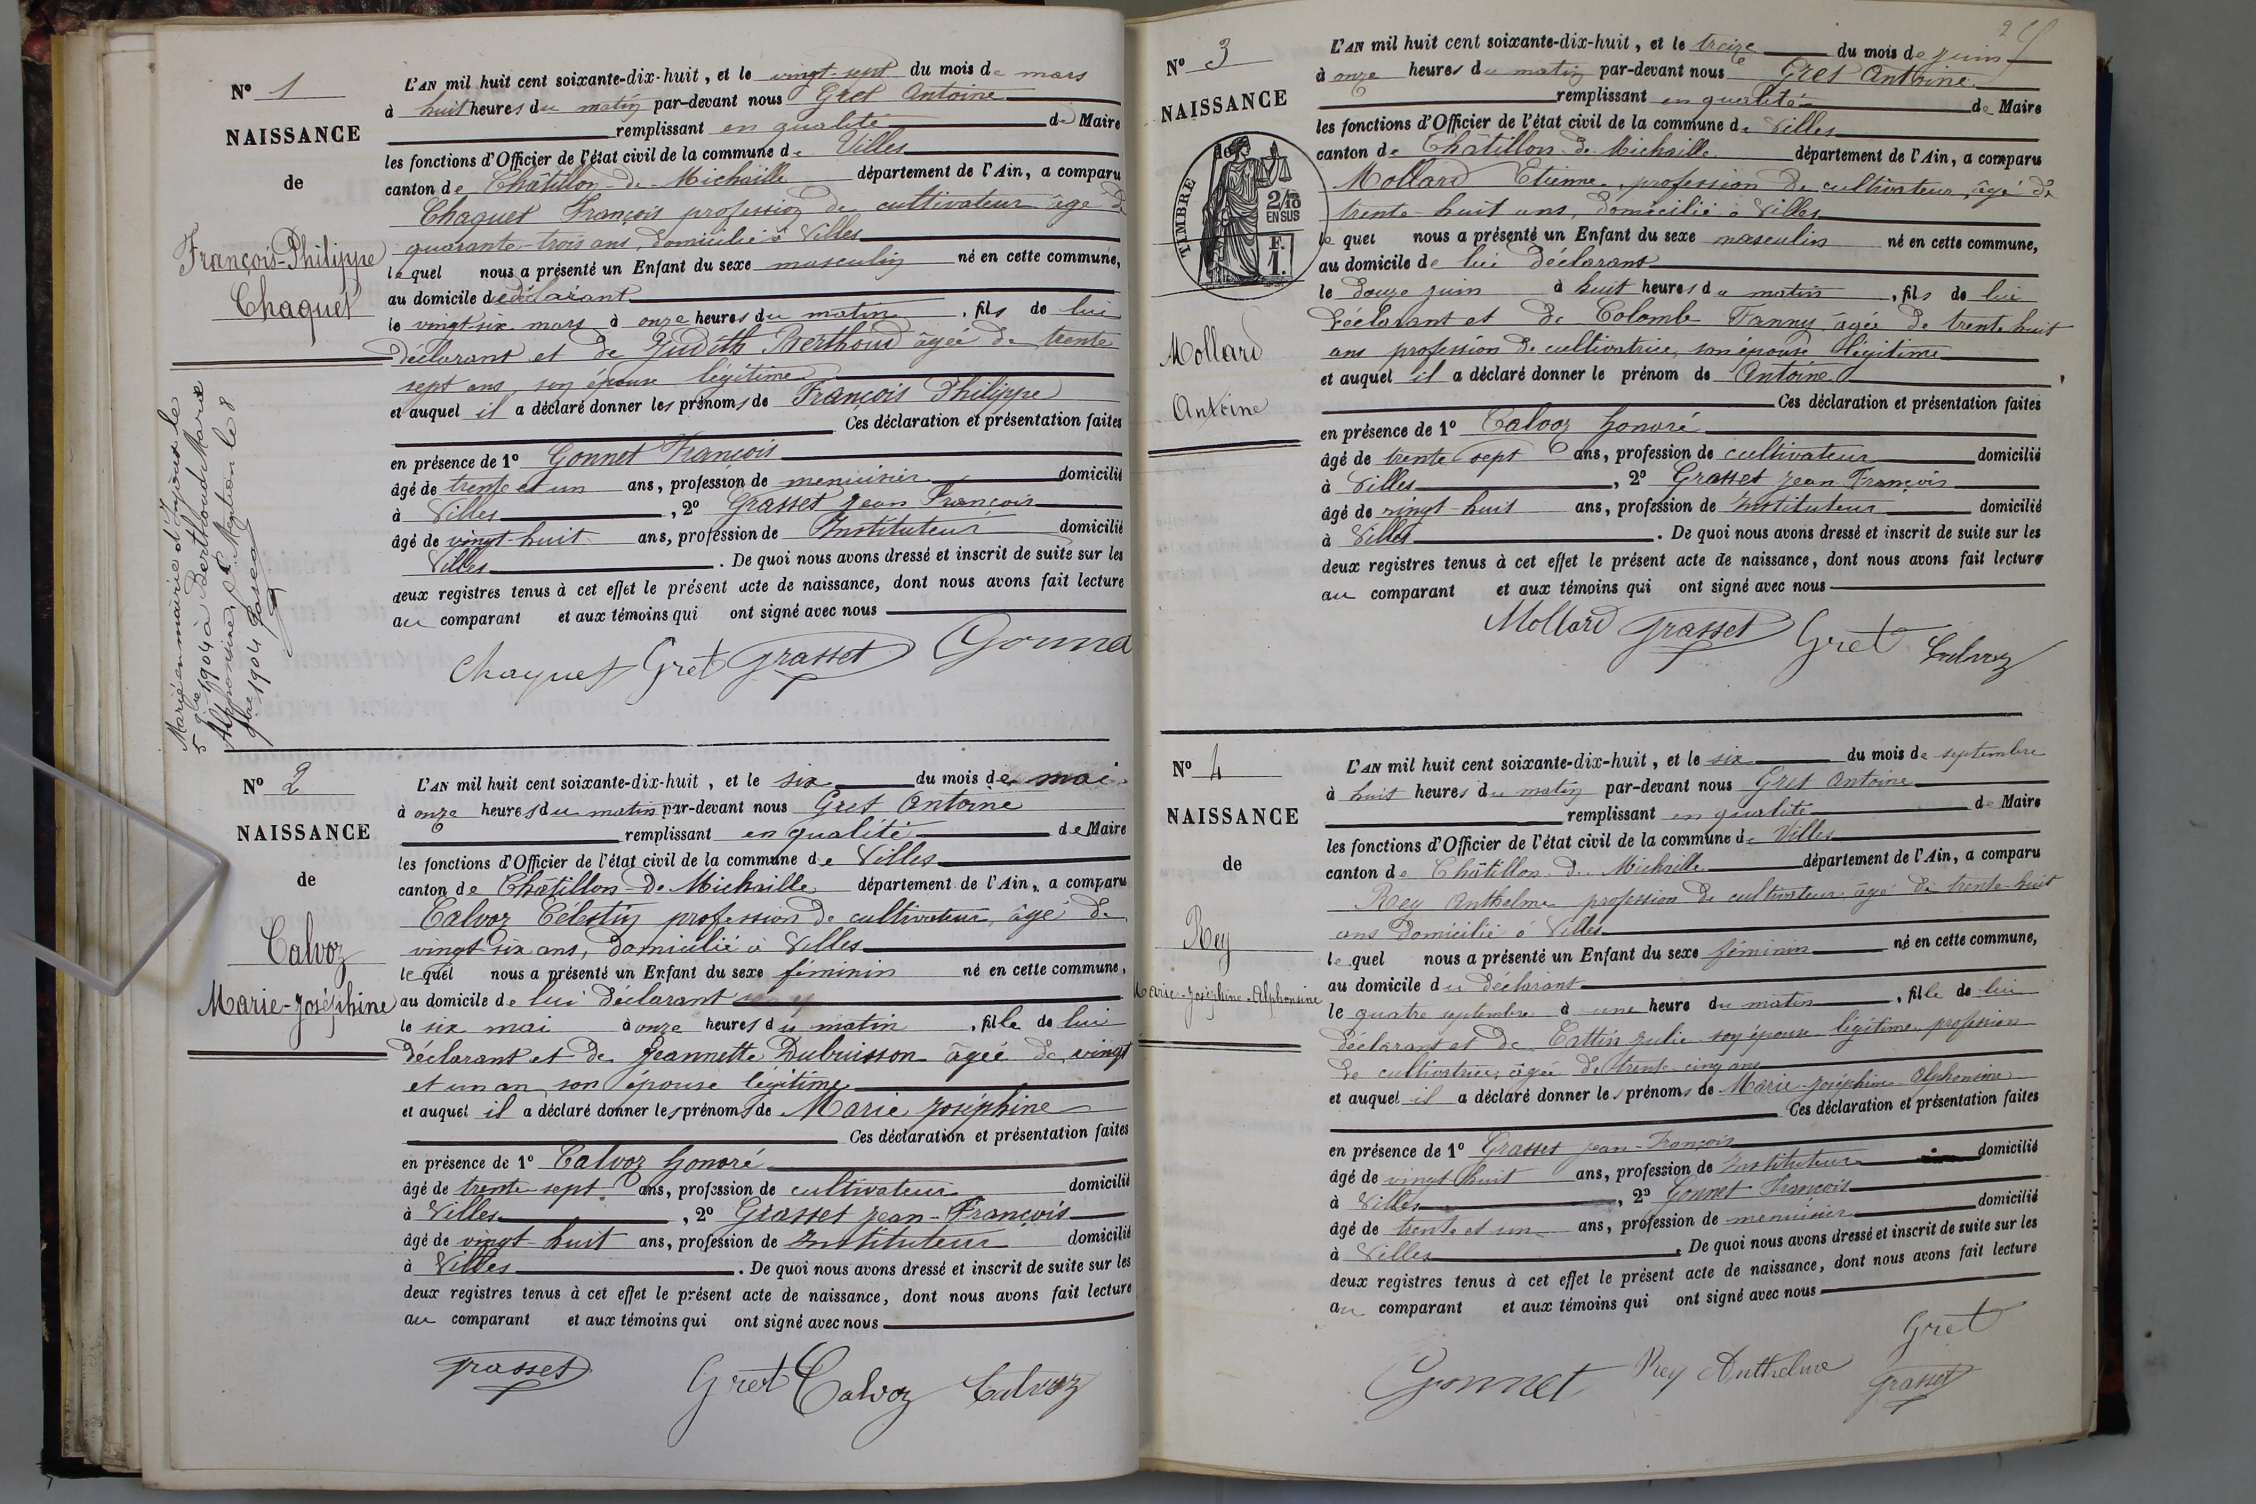 N° 1
NAISSANCE
de
François-Philippe
Chaquet
Marié en mairie d'Injoux le
5 9bre 1904 à Berthoud Marie
Alphonsine. Mention le 8
9bre 1904
L'AN mil huit cent soixante-dix-huit, et le vingt-sept du mois de mars
à huit heures du matin par-devant nous Gret Antoine
remplissant en qualité de Maire
les fonctions d'Officier de l'état civil de la commune de Villes
canton de Châtillon-de-Michaille département de l'Ain, a comparu
Chaquet François profession de cultivateur âgé de
quarante-trois ans, domicilié à Villes
lequel nous a présenté un Enfant du sexe masculin né en cette commune,
au domicile du déclarant
le vingt-six mars à onze heures du matin, fils de lui
déclarant et de Judith Berthoud âgée de trente
sept ans, son épouse légitime
et auquel il a déclaré donner les prénoms de François Philippe
Ces déclaration et présentation faites
en présence de 1° Gonnet François
âgé de trente et un ans, profession de menuisier domicilié
à Villes, 2° Grasset Jean François
âgé de vingt-huit ans, profession de Instituteur domicilié
Villes. De quoi nous avons dressé et inscrit de suite sur les
deux registres tenus à cet effet le présent acte de naissance, dont nous avons fait lecture
au comparant et aux témoins qui ont signé avec nous
Chaquet Gret Grasset Gonnet
N° 2
NAISSANCE
de
Calvoz
Marie-Joséphine
L'AN mil huit cent soixante-dix-huit, et le six du mois de mai
à onze heures du matin par-devant nous Gret Antoine
remplissant en qualité de Maire
les fonctions d'Officier de l'état civil de la commune de Villes
canton de Châtillon-de-Michaille département de l'Ain, a comparu
Calvoz Célestin profession de cultivateur, âgé de
vingt six ans, domicilié à Villes
lequel nous a présenté un Enfant du sexe féminin né en cette commune,
au domicile de lui déclarant
le six mai à onze heures du matin, fille de lui
déclarant et de Jeannette Dubuisson âgée de vingt
et un an, son épouse légitime
et auquel il a déclaré donner les prénoms de Marie Joséphine
Ces déclaration et présentation faites
en présence de 1° Calvoz Honoré
âgé de trente-sept ans, profession de cultivateur domicilié
à Villes, 2° Grasset Jean-François
âgé de vingt-huit ans, profession de Instituteur domicilié
à Villes. De quoi nous avons dressé et inscrit de suite sur les
deux registres tenus à cet effet le présent acte de naissance, dont nous avons fait lecture
au comparant et aux témoins qui ont signé avec nous
Grasset Gret Calvoz Calvoz
N° 3
NAISSANCE
de
TIMBRE
2/10
EN SUS
F.
1.
Mollard
Antoine
L'AN mil huit cent soixante-dix-huit, et le treize du mois de juin
à onze heures du matin par-devant nous Gret Antoine
remplissant en qualité de Maire
les fonctions d'Officier de l'état civil de la commune de Villes
canton de Châtillon-de-Michaille département de l'Ain, a comparu
Mollard Etienne, profession de cultivateur, âgé de
trente-huit ans, domicilié à Villes
lequel nous a présenté un Enfant du sexe masculin né en cette commune,
au domicile de lui déclarant
le douze juin à huit heures du matin, fils de lui
déclarant et de Colomb Fanny, âgée de trente huit
ans profession de cultivatrice, son épouse légitime
et auquel il a déclaré donner le prénom de Antoine
Ces déclaration et présentation faites
en présence de 1° Calvoz Honoré
âgé de trente sept ans, profession de cultivateur domicilié
à Villes, 2° Grasset Jean François
âgé de vingt-huit ans, profession de Instituteur domicilié
à Villes. De quoi nous avons dressé et inscrit de suite sur les
deux registres tenus à cet effet le présent acte de naissance, dont nous avons fait lecture
au comparant et aux témoins qui ont signé avec nous
Mollard Grasset Gret Calvoz
N° 4
NAISSANCE
de
Rey
Marie-Joséphine-Alphonsine
L'AN mil huit cent soixante-dix-huit, et le six du mois de septembre
à huit heures du matin par-devant nous Gret Antoine
remplissant en qualité de Maire
les fonctions d'Officier de l'état civil de la commune de Villes
canton de Châtillon-de-Michaille département de l'Ain, a comparu
Rey Anthelme profession de cultivateur âgé de trente-huit
ans domicilié à Villes
lequel nous a présenté un Enfant du sexe féminin né en cette commune,
au domicile du déclarant
le quatre septembre à une heure du matin, fille de lui
déclarant et de Cattin Julie son épouse légitime profession
de cultivatrice, âgée de trente-cinq ans
et auquel il a déclaré donner les prénoms de Marie-Joséphine Alphonsine
Ces déclaration et présentation faites
en présence de 1° Grasset Jean-François
âgé de vingt huit ans, profession de Instituteur domicilié
à Villes, 2° Gonnet François
âgé de trente et un ans, profession de menuisier domicilié
à Villes. De quoi nous avons dressé et inscrit de suite sur les
deux registres tenus à cet effet le présent acte de naissance, dont nous avons fait lecture
au comparant et aux témoins qui ont signé avec nous
Gret
Gonnet Rey Anthelme Grasset